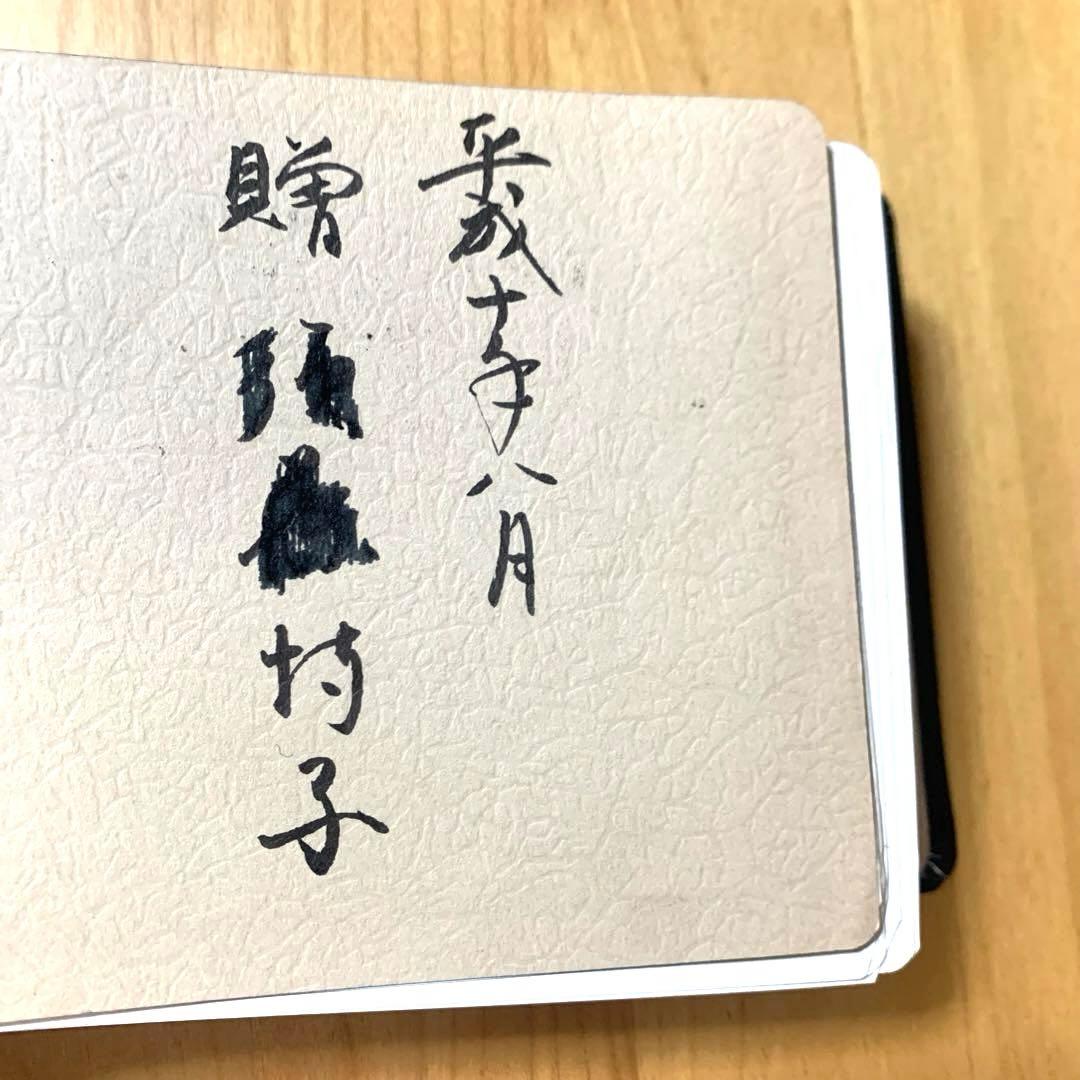 平成十年八月
贈 持子